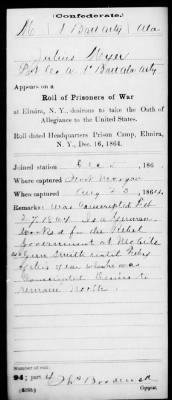 (Confederate.)
M 1 Batt Arty Ala
Julius Meyer
Pvt Co A 1st Batt Ala Arty
Appears on a
Roll of Prisoners of War
at Elmira, N. Y., desirous to take the Oath of
Allegiance to the United States.
Roll dated Headquarters Prison Camp, Elmira,
N. Y., Dec. 16, 1864.
Joined station 186 .
Where captured Fort Morgan
When captured Aug 23, 1864.
Remarks: Was conscripted Feb
1864 Is a German
Worked for the Rebel
Government at Mobile
as Gun Smith until Feby
of this year when he was
Conscripted Desires to
remain North.
Number of roll:
94; part 4
Copyist.